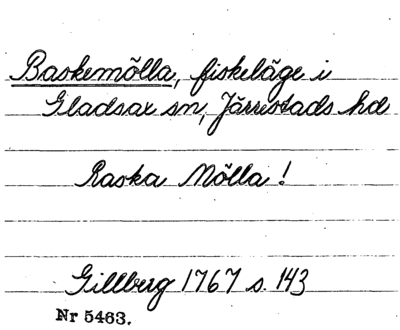 Baskemölla, fiskeläge i
Gladsax sn, Järrestads hd
Raska Mölla!
Gillberg 1767 s. 143
Nr 5463.